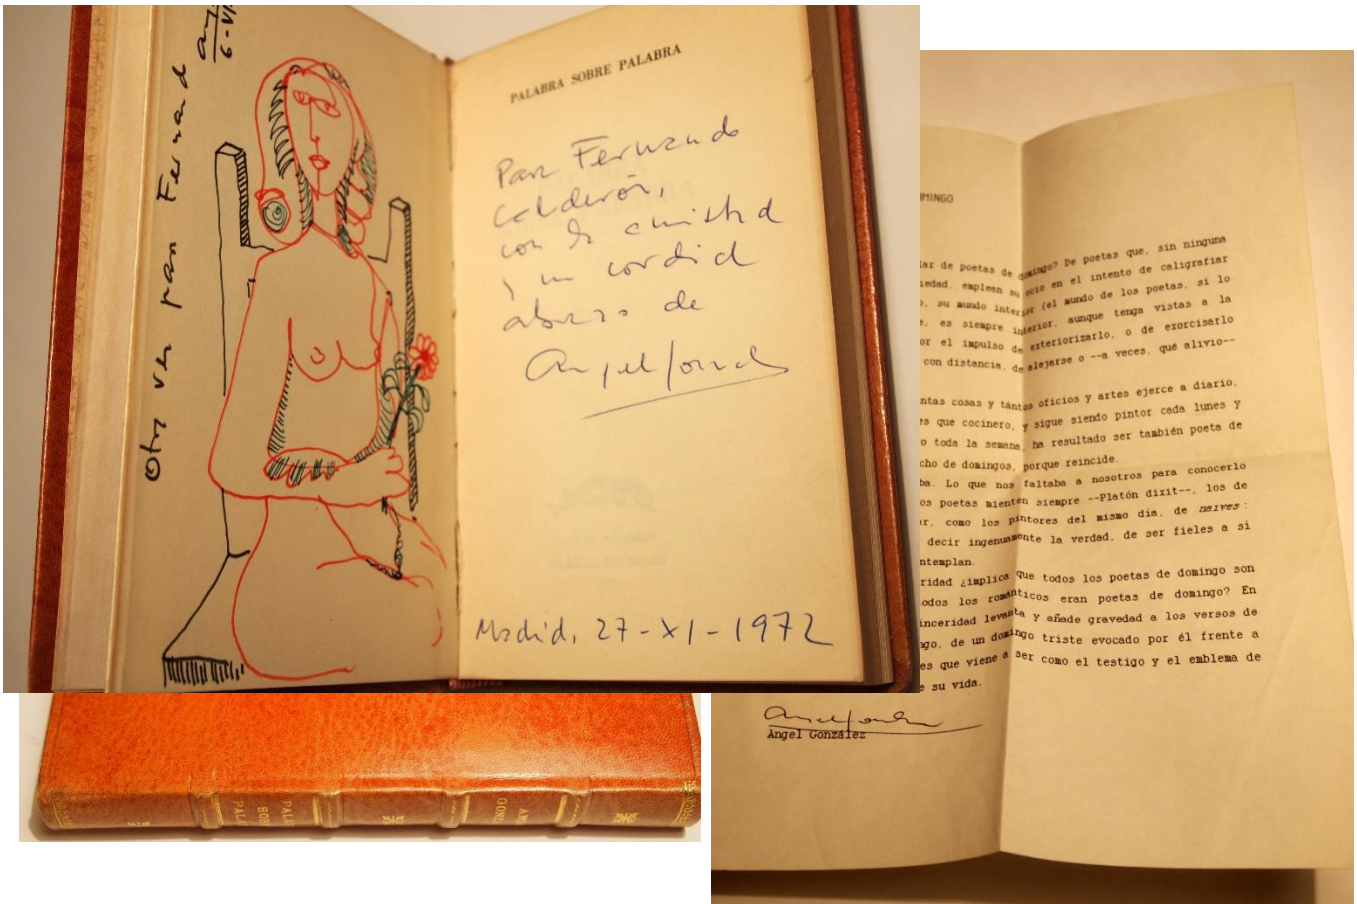 Otra vez para Fernand
6-VI
PALABRA SOBRE PALABRA
Para Fernando
Calderón,
con la amistad
y un cordial
abrazo de
Angel González
Madrid, 27-XI-1972
MINGO
lar de poetas de domingo? De poetas que, sin ninguna
iedad, emplean su ocio en el intento de caligrafiar
o, su mundo interior (el mundo de los poetas, si lo
e, es siempre interior, aunque tenga vistas a la
or el impulso de exteriorizarlo, o de exorcisarlo
con distancia, de alejarse o --a veces, qué alivio--
ntas cosas y tántos oficios y artes ejerce a diario,
es que cocinero, y sigue siendo pintor cada lunes y
o toda la semana, ha resultado ser también poeta de
cho de domingos, porque reincide.
ba. Lo que nos faltaba a nosotros para conocerlo
os poetas mienten siempre --Platón dixit--, los de
ar, como los pintores del mismo día, de naives:
decir ingenuamente la verdad, de ser fieles a sí
ntemplan.
ridad ¿implica que todos los poetas de domingo son
odos los románticos eran poetas de domingo? En
inceridad levanta y añade gravedad a los versos de
ngo, de un domingo triste evocado por él frente a
es que viene a ser como el testigo y el emblema de
e su vida.
Angel González
Angel González
PALA
SOB
PALA
ANG
GONZ